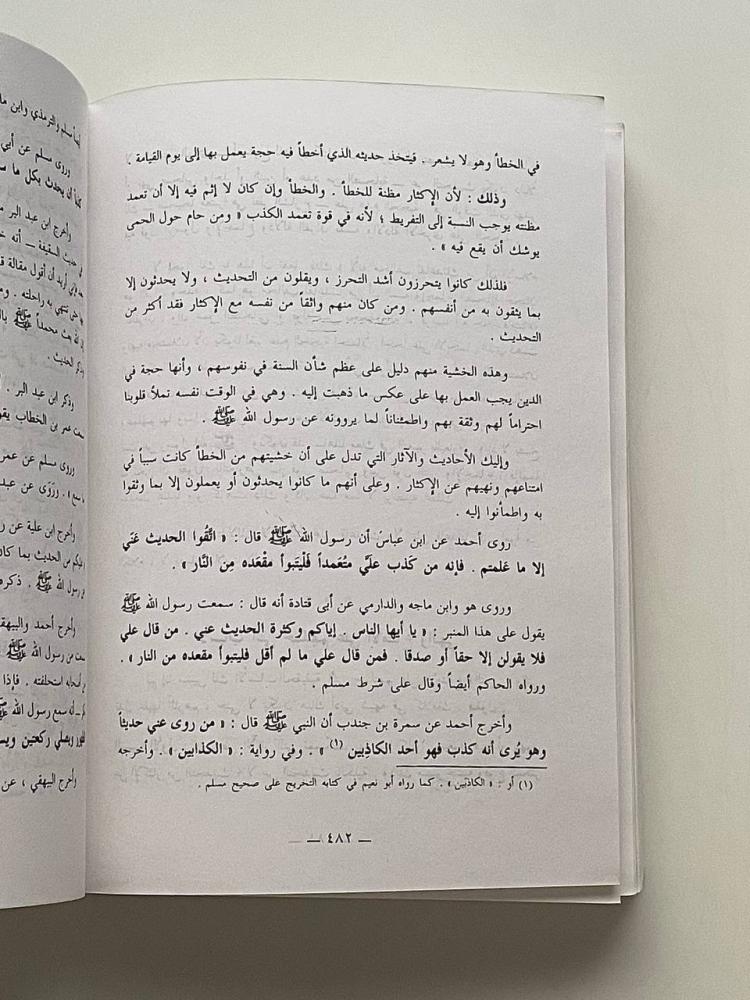 في الخطأ وهو لا يشعر . فيتخذ حديثه الذي أخطأ فيه حجة يعمل بها إلى يوم القيامة .
وذلك : لأن الإكثار مظنة للخطأ . والخطأ وإن كان لا إثم فيه إلا أن تعمد
مظنته يوجب النسبة إلى التفريط ؛ لأنه في قوة تعمد الكذب « ومن حام حول الحمى
يوشك أن يقع فيه » .
فلذلك كانوا يتحرزون أشد التحرز ، ويقلون من التحديث ، ولا يحدثون إلا
بما يثقون به من أنفسهم . ومن كان منهم واثقاً من نفسه مع الإكثار فقد أكثر من
التحديث .
وهذه الخشية منهم دليل على عظم شأن السنة في نفوسهم ، وأنها حجة في
الدين يجب العمل بها على عكس ما ذهبت إليه . وهي في الوقت نفسه تملأ قلوبنا
احتراماً لهم وثقة بهم واطمئناناً لما يروونه عن رسول الله ﷺ .
وإليك الأحاديث والآثار التي تدل على أن خشيتهم من الخطأ كانت سبباً في
امتناعهم ونهيهم عن الإكثار . وعلى أنهم ما كانوا يحدثون أو يعملون إلا بما وثقوا
به واطمأنوا إليه .
روى أحمد عن ابن عباس أن رسول الله ﷺ قال : « اتَّقُوا الحديث عَنّي
إلا ما عَلمتم . فإنه من كَذب علَيَّ مُتَعمداً فَلْيَتبوأ مقْعَده مِنَ النَّار » .
وروى هو وابن ماجه والدارمي عن أبى قتادة أنه قال : سمعت رسول الله ﷺ
يقول على هذا المنبر : « يا أيها الناس . إياكم وكثرة الحديث عني . من قال علي
فلا يقولن إلا حقاً أو صدقا . فمن قال علي ما لم أقل فليتبوأ مقعده من النار » .
ورواه الحاكم أيضاً وقال على شرط مسلم .
وأخرج أحمد عن سمرة بن جندب أن النبي ﷺ قال : « من روى عني حديثاً
وهو يُرى أنه كذب فهو أحد الكاذِبين (١) » . وفي رواية : « الكذابين » . وأخرجه
(١) أو : « الكاذبَين » . كما رواه أبو نعيم في كتابه التخريج على صحيح مسلم .
— ٤٨٢ —